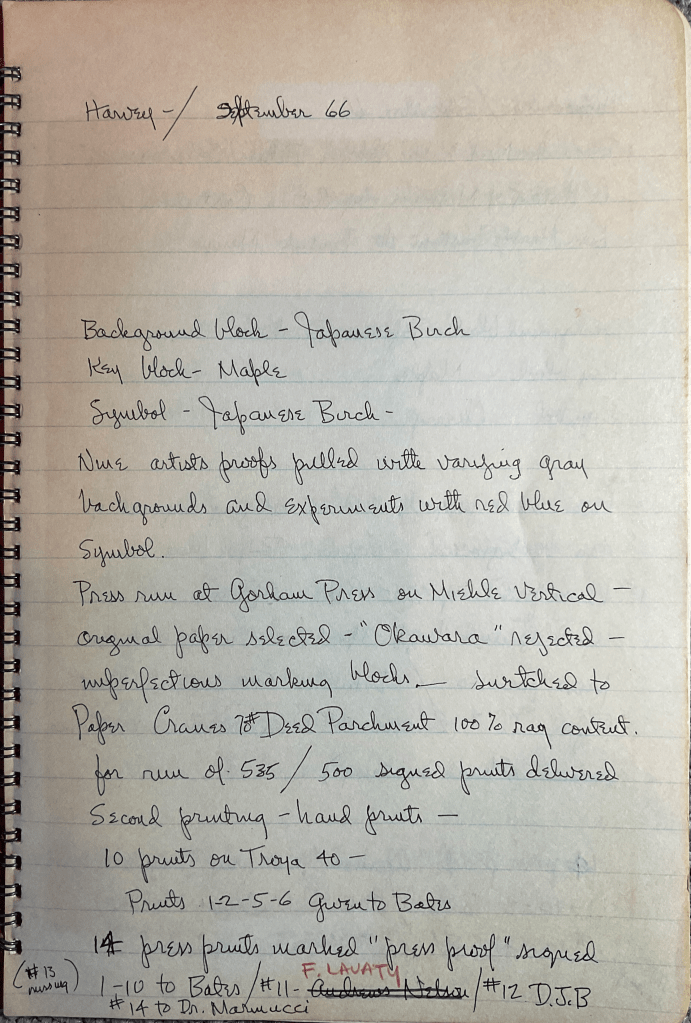 Harvey - / September 66
Background block - Japanese Birch
Key block - Maple
Symbol - Japanese Birch -
Nine artists proofs pulled with varying gray
backgrounds and experiments with red blue on
Symbol.
Press run at Gorham Press on Miehle Vertical -
original paper selected - "Okawara" rejected -
imperfections marking blocks. — switched to
Paper Cranes 70# Deed Parchment 100% rag content.
for run of 535 / 500 signed prints delivered
Second printing - hand prints -
10 prints on Troya 40 -
Prints 1-2-5-6 Given to Bates
14 press prints marked "press proof" signed
F. LAVATY
(#13 missing) 1-10 to Bates / #11 - Andrews Nelson / #12 D.J.B
#14 to Dr. Marinucci